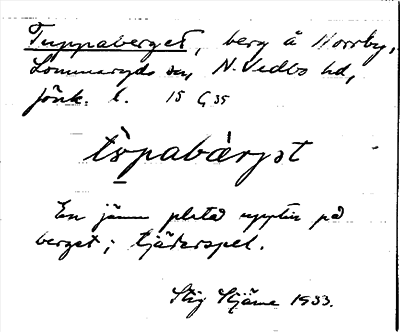 Tuppaberget, berg å Norrby,
Lommaryds sn, N. Vedbo hd,
Jönk. l. 15 G 35
tòpabærjət
En jämn platå upptill på
berget; tjäderspel.
Stig Stjärne 1933.